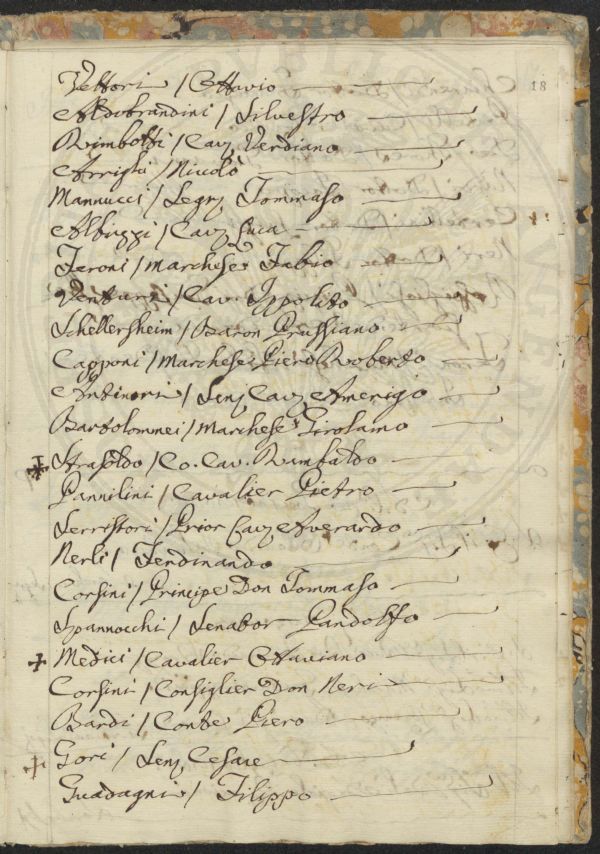 18
Vettori / Ottavio
Aldobrandini / Silvestro
Rimbotti / Cav. Verdiano
Arrighi / Niccolò
Mannucci / Legr. Tommaso
Albizzi / Cav. Luca
Feroni / Marchese Fabio
Venturi / Cav. Ippolito
Schellersheim / Baron Prussiano
Capponi / Marchese Piero Roberto
Antinori / Sen. Cav. Amerigo
Bartolommei / Marchese Girolamo
Strasoldo / Co. Cav. Rambaldo
Pannilini / Cavalier Pietro
Serristori / Prior Cav. Averardo
Nerli / Ferdinando
Corsini / Principe Don Tommaso
Spannocchi / Senator Pandolfo
Medici / Cavalier Ottaviano
Corsini / Consiglier Don Neri
Bardi / Conte Piero
Gori / Sen. Cesare
Guadagni / Filippo